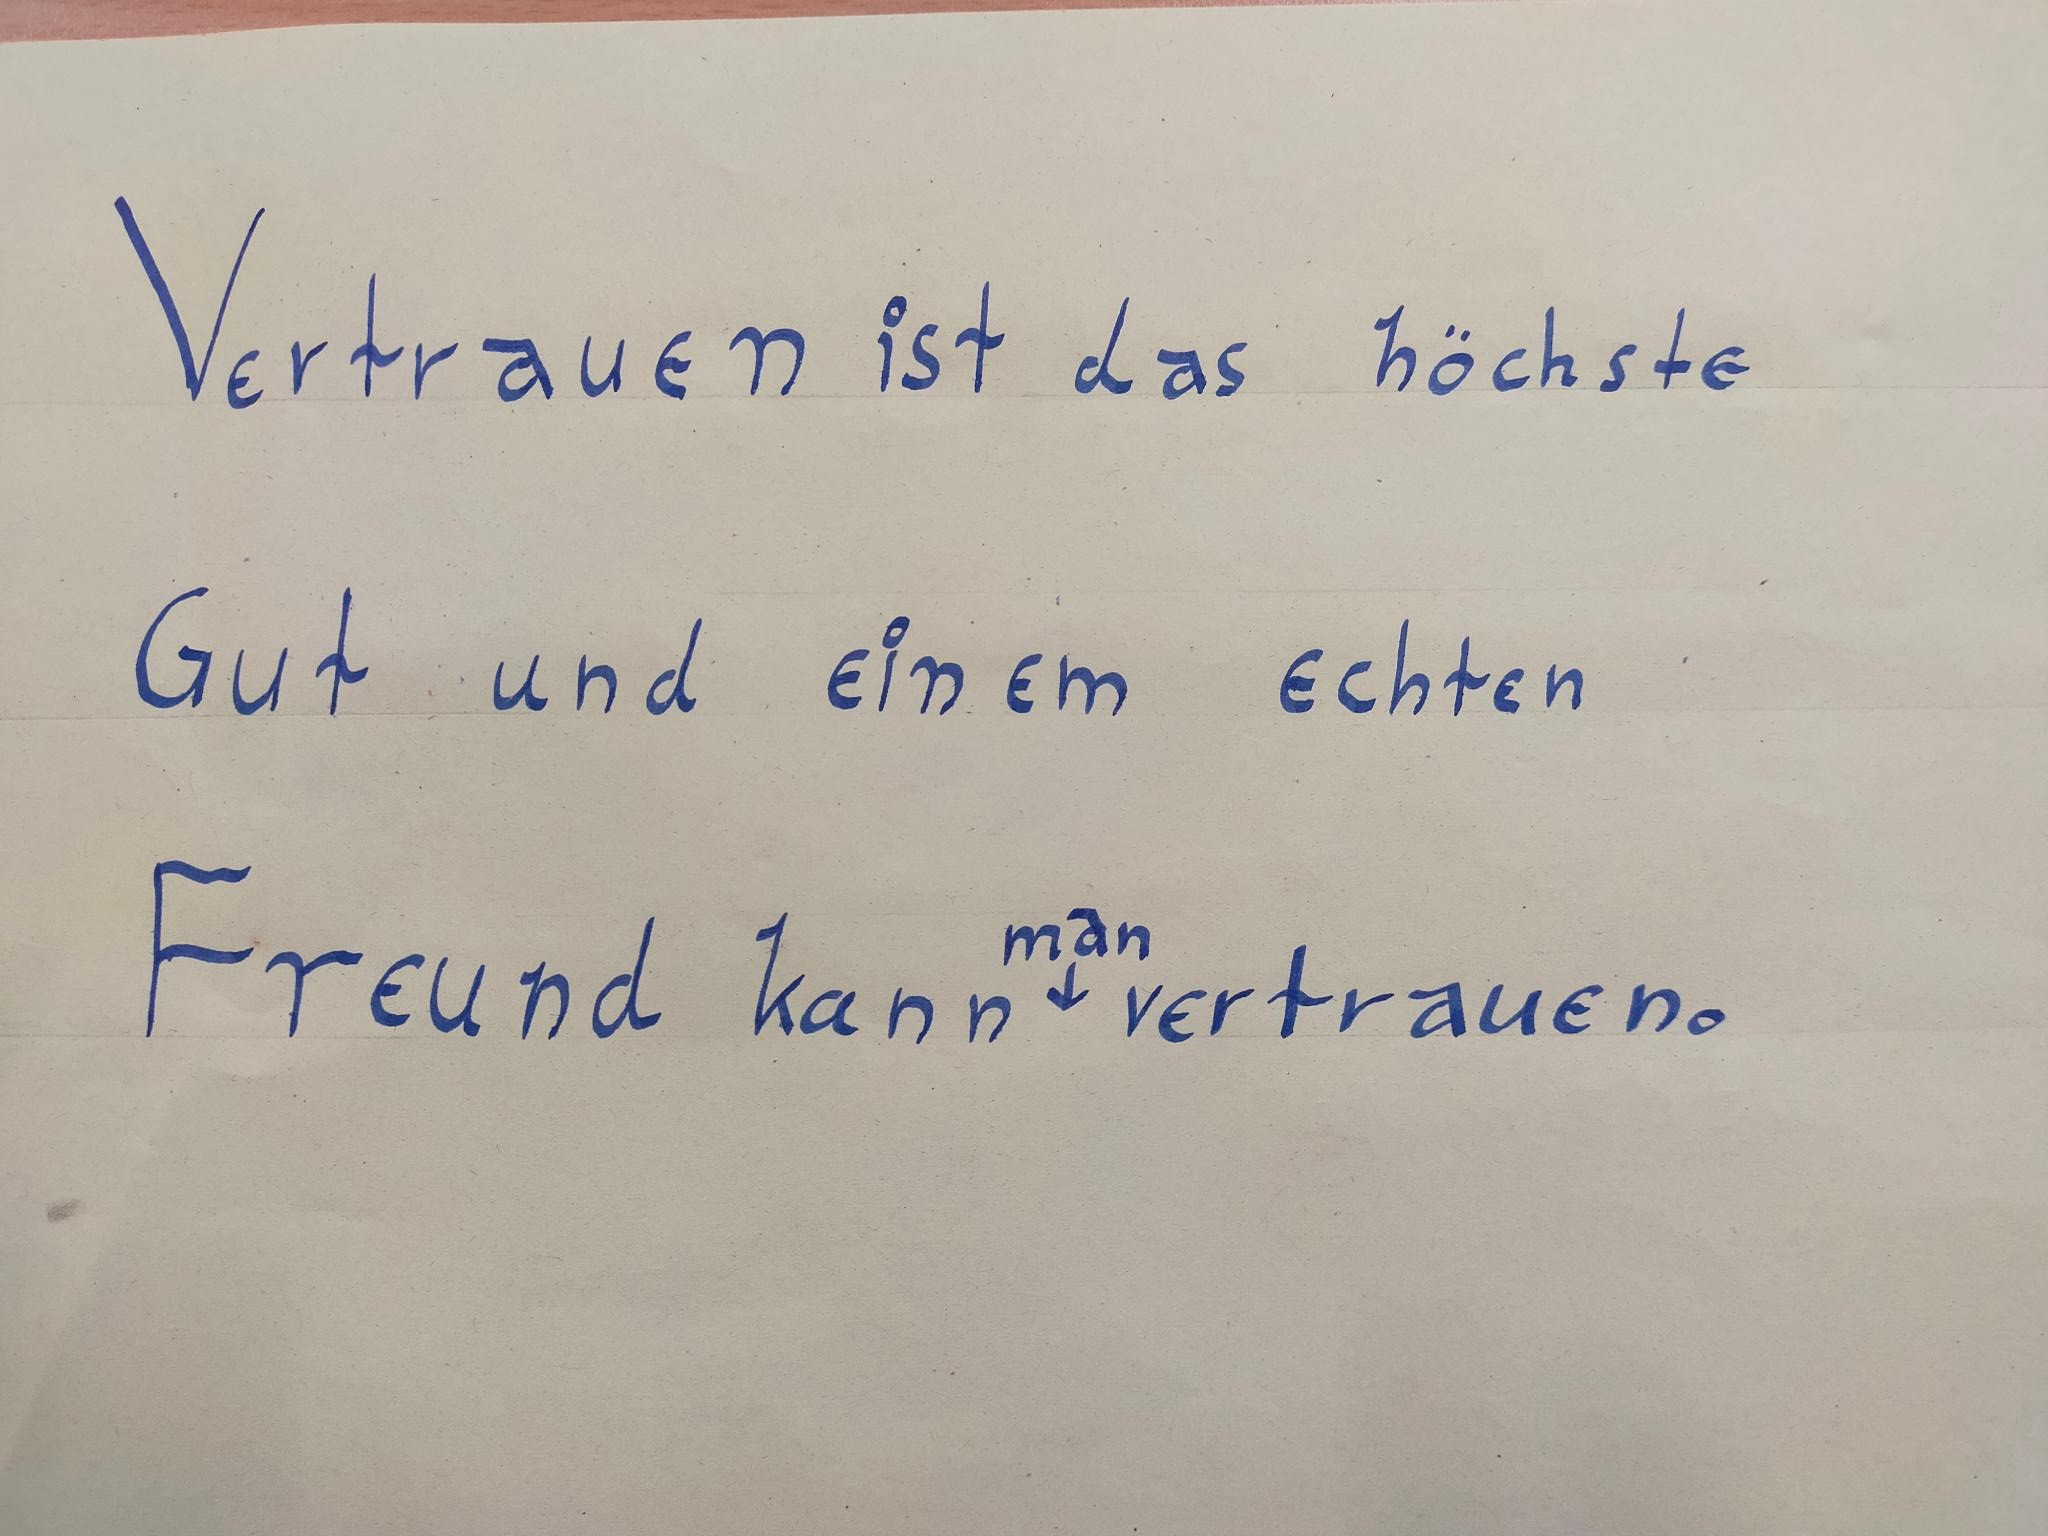 Vertrauen ist das höchste
Gut und einem echten
Freund kann man vertrauen.